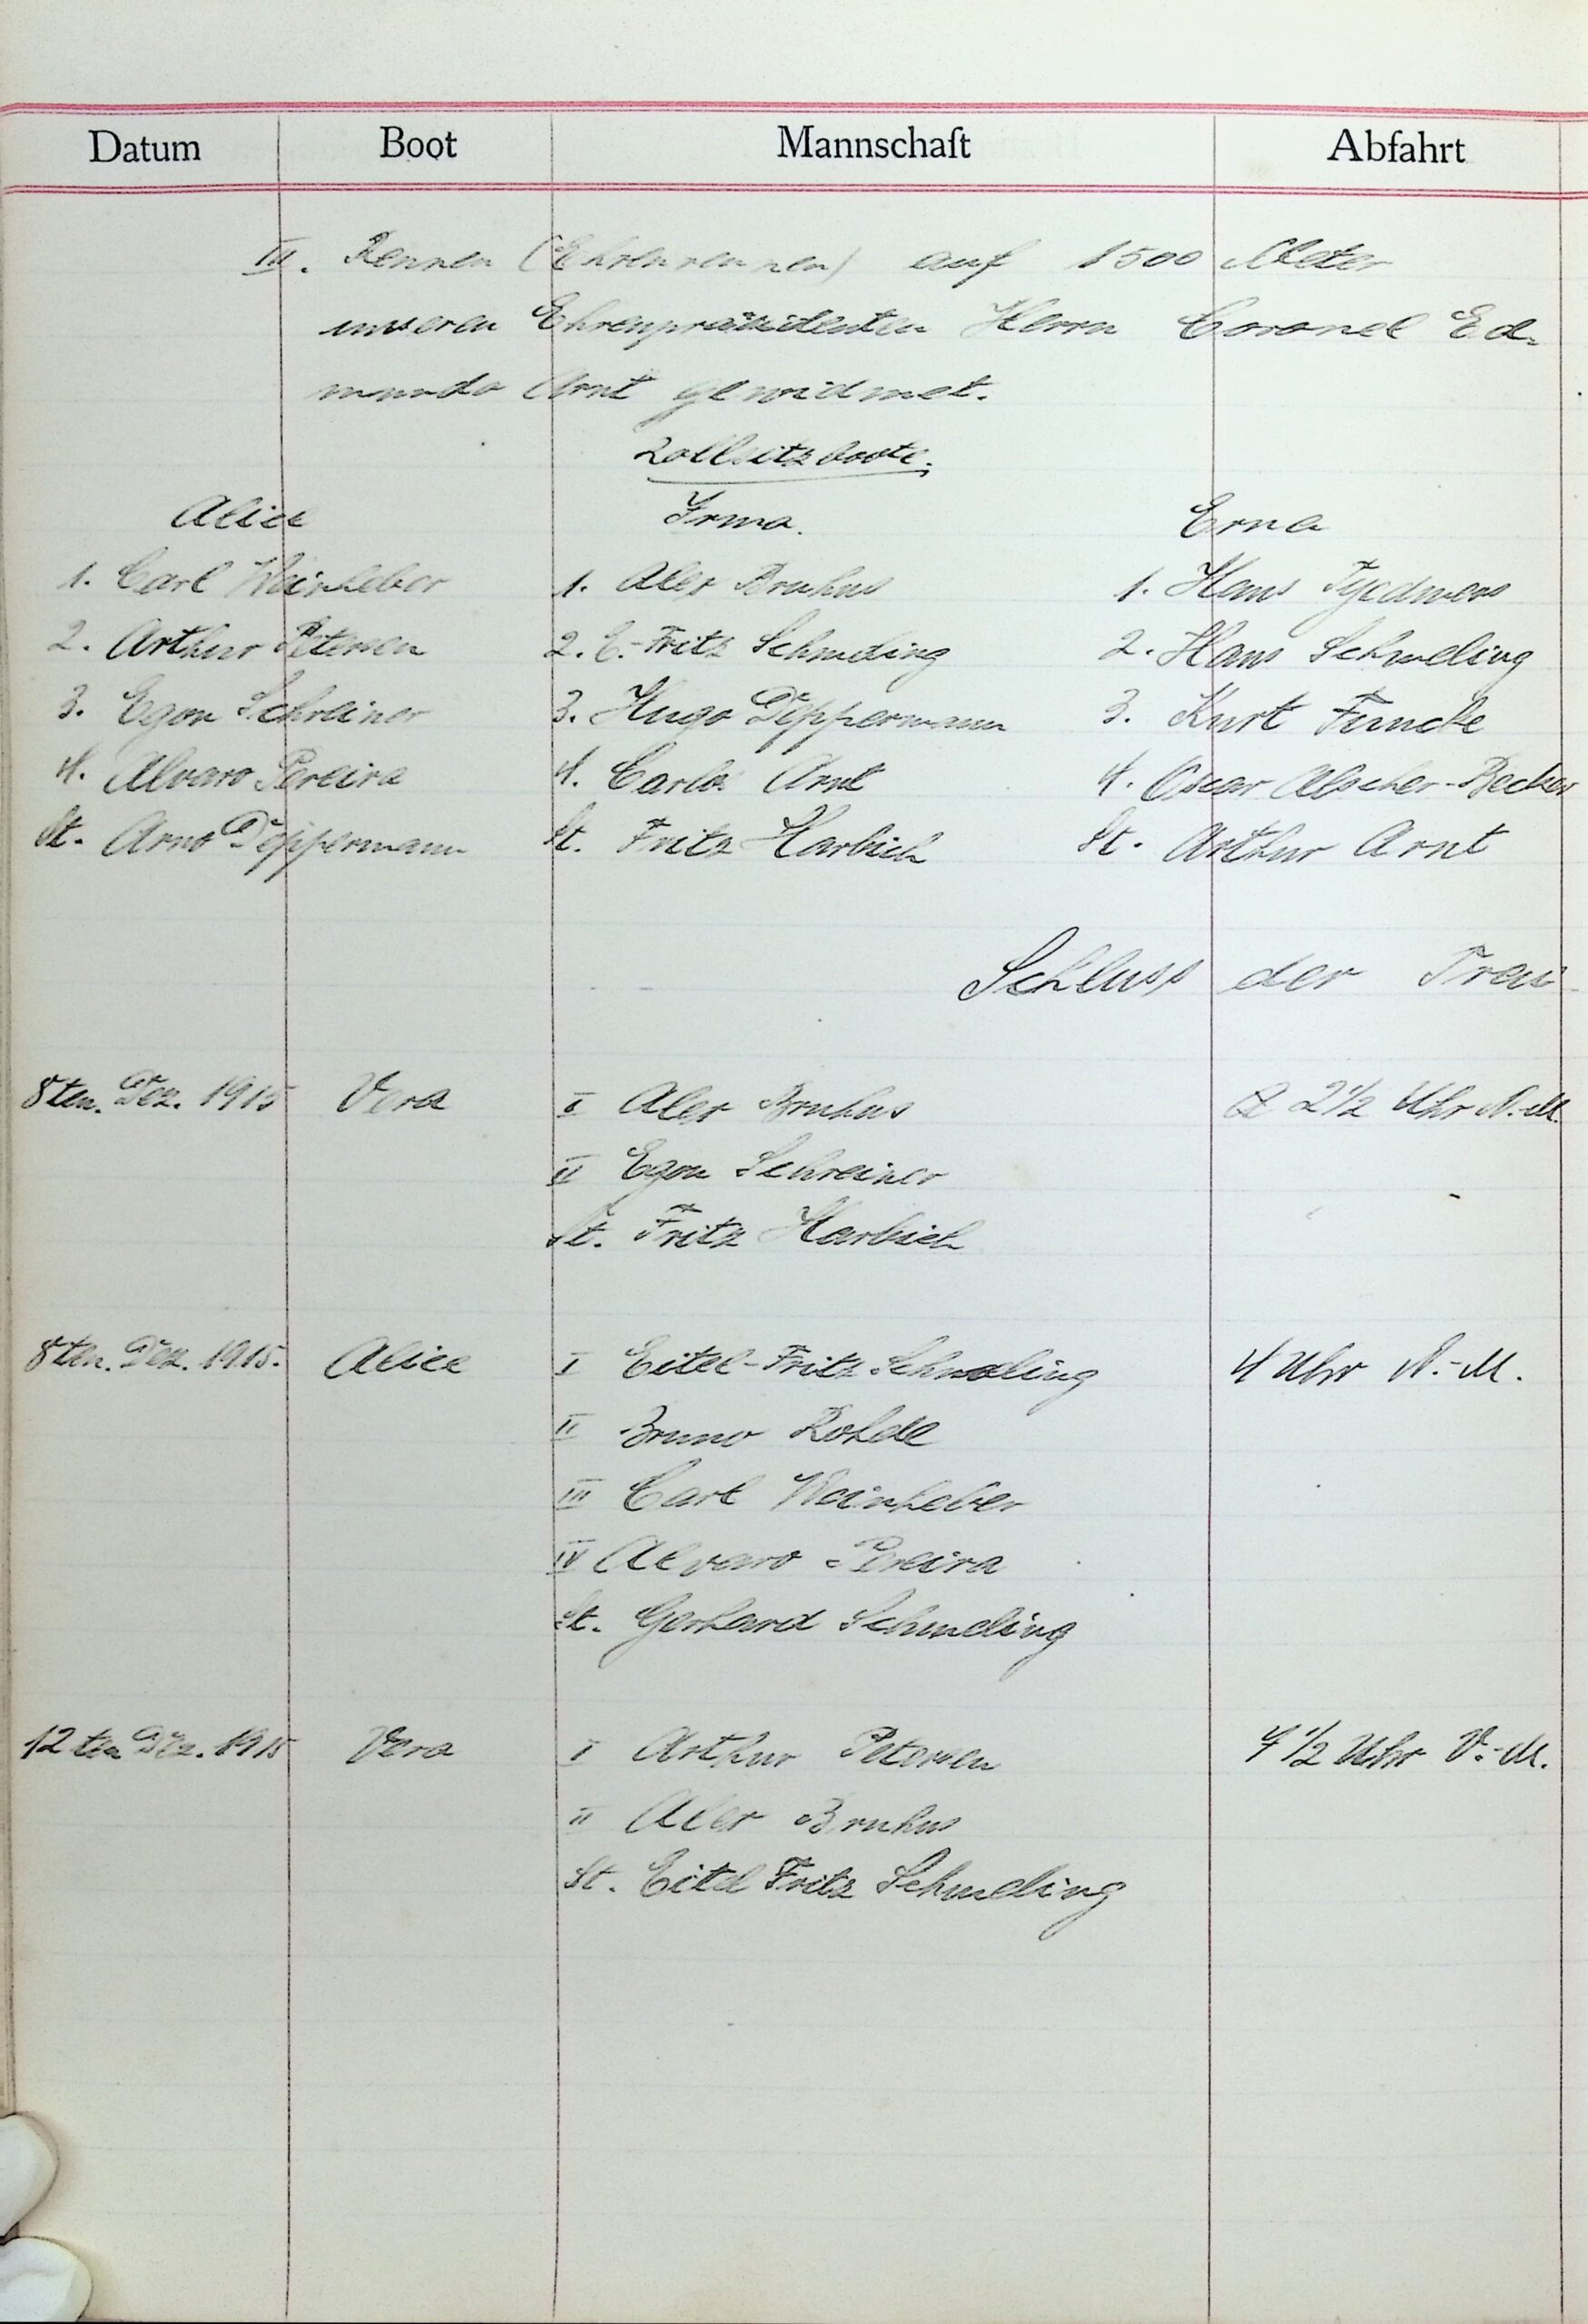 Datum Boot Mannschaft Abfahrt
III. Rennen (Ehrenrennen) auf 1500 Meter
unseren Ehrenpräsidenten Herrn Coronel Ed-
mundo Arnt gewidmet.
Dollsitzboote.
Alice Irma. Erna
1. Carl Weinheber 1. Alex Bruhns 1. Hans
2. Arthur Petersen 2. E.-Fritz Schmeling 2. Hans Schmeling
3. Egon Schreiner 3. Hugo Deppermann 3. Kurt Funcke
4. Alvaro Pereira 4. Carlos Arnt 4. Oscar Alscher-Becker
St. Arno Deppermann St. Fritz Harbich St. Arthur Arnt
Schluss der
8ten. Dez. 1915 Vera I Alex Bruhns 2 1/2 Uhr N.-M.
II Egon Schreiner
St. Fritz Harbich
8ten. Dez. 1915. Alice I Eitel-Fritz Schmeling 4 Uhr N.-M.
II Bruno Rohde
III Carl Weinheber
IV Alvaro Pereira
St. Gerhard Schmeling
12ten Dez. 1915 Vera I Arthur Petersen 1/2 Uhr V.-M.
II Alex Bruhns
St. Eitel Fritz Schmeling